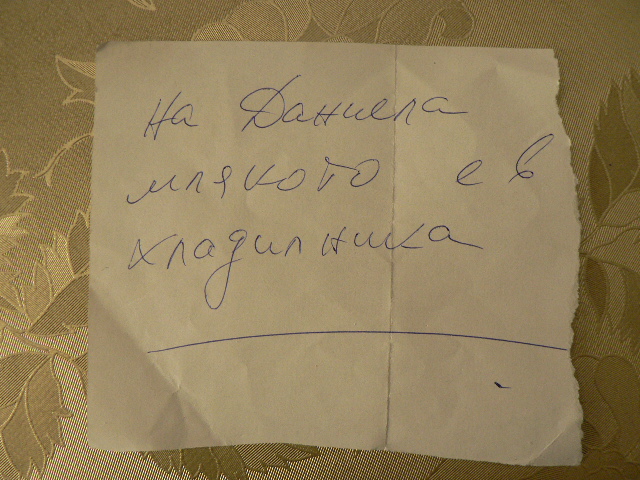 На Даниела
млякото е в
хладилника